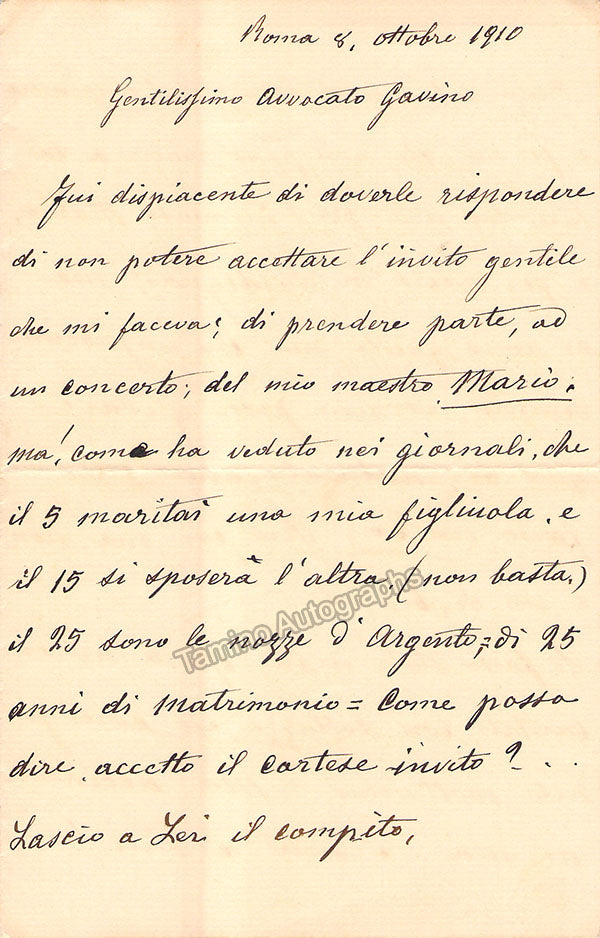 Roma 8, ottobre 1910
Gentilissimo Avvocato Gavino
Fui dispiacente di doverle rispondere
di non potere accettare l'invito gentile
che mi faceva; di prendere parte, ad
un concerto; del mio maestro Mario.
ma! come ha veduto nei giornali, che
il 5 maritai una mia figliuola, e
il 15 si sposerà l'altra, (non basta.)
il 25 sono le nozze d'Argento; = di 25
anni di Matrimonio = Come posso
dire, accetto il cortese invito? ..
Lascio a Lei il compito,
Tamino Autographs